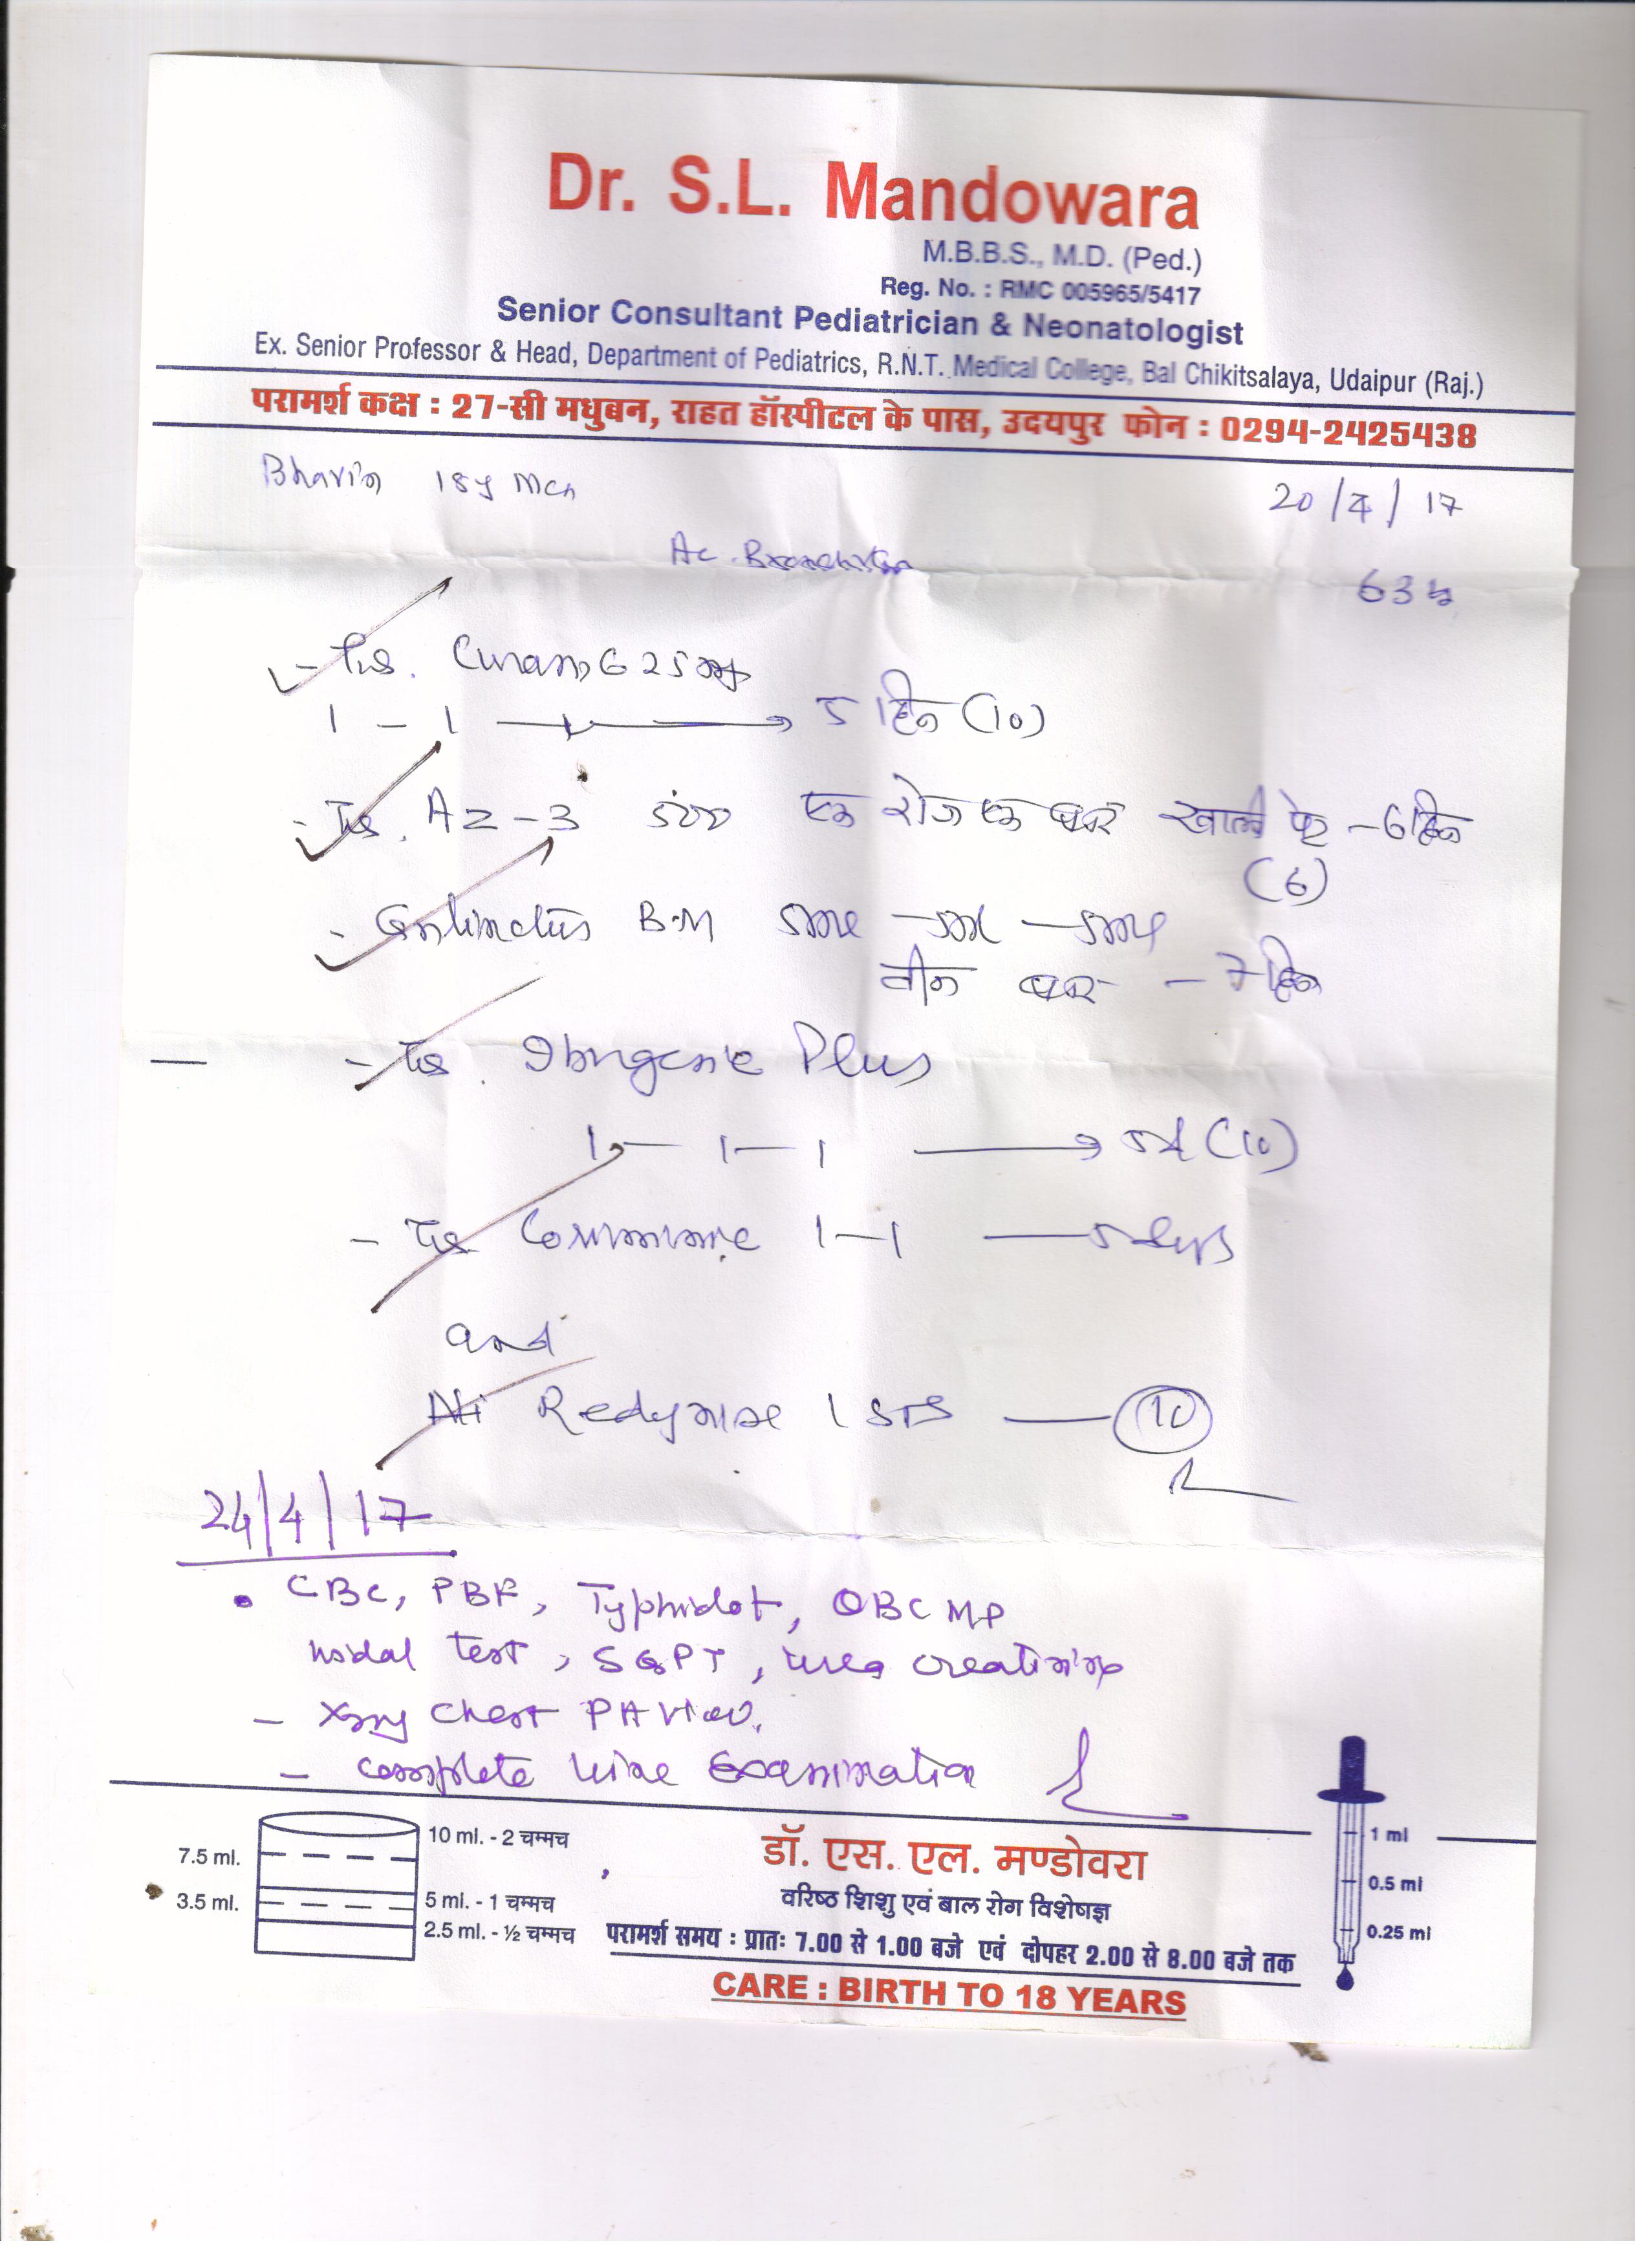 Dr. S.L. Mandowara
M.B.B.S., M.D. (Ped.)
Reg. No. : RMC 005965/5417
Senior Consultant Pediatrician & Neonatologist
Ex. Senior Professor & Head, Department of Pediatrics, R.N.T. Medical College, Bal Chikitsalaya, Udaipur (Raj.)
परामर्श कक्ष : 27-सी मधुबन, राहत हॉस्पीटल के पास, उदयपुर फोन : 0294-2425438
Bhavin 18y 20/4/17
Ac.
63
- Curam 625
1 - 1 → 5 दिन (10)
- AZ-3 500 एक रोज एक बार खाली पेट - 6 दिन
(6)
- BM 5ml - 5ml - 5ml
तीन बार - 7 दिन
- Plus
1 - 1 - 1 → 5d (10)
- 1-1 — 5 days
and
— 10
24/4/17
• CBC, PBF, Typhidot, QBC MP
test, SGPT, urea creatinine
- Xray Chest PA View.
- complete urine Examination
7.5 ml.
3.5 ml.
10 ml. - 2 चम्मच
5 ml. - 1 चम्मच
2.5 ml. - ½ चम्मच
डॉ. एस. एल. मण्डोवरा
वरिष्ठ शिशु एवं बाल रोग विशेषज्ञ
परामर्श समय : प्रातः 7.00 से 1.00 बजे एवं दोपहर 2.00 से 8.00 बजे तक
CARE : BIRTH TO 18 YEARS
1 ml
0.5 ml
0.25 ml